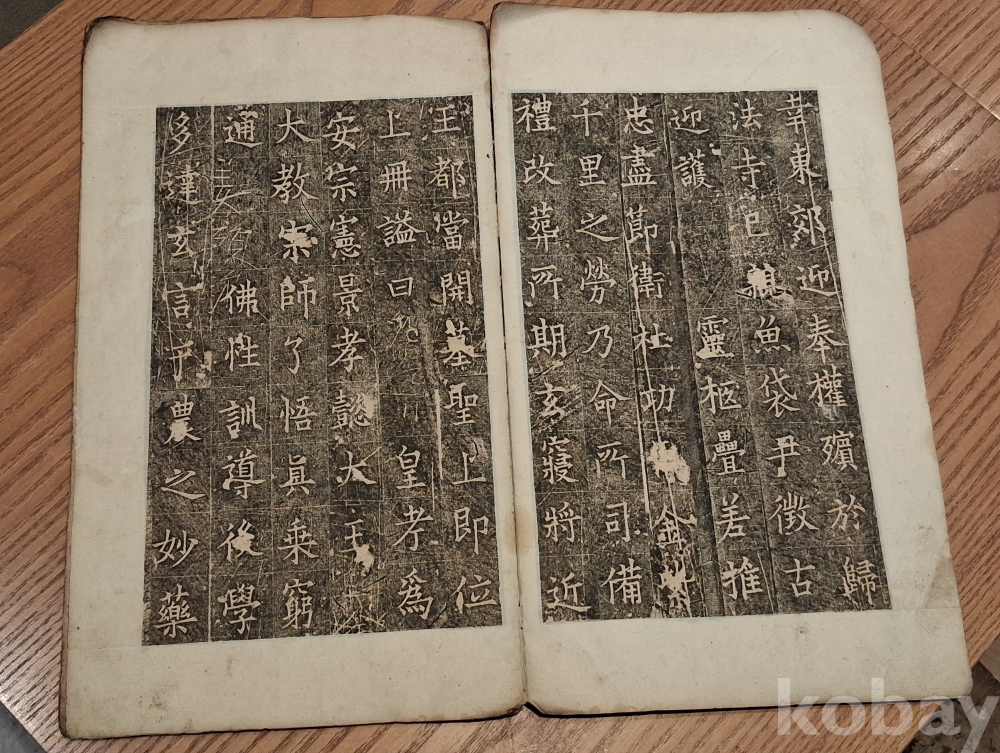 幸東郊迎奉權殯於歸
法寺已親魚袋尹徵古
迎護靈柩疊差推
忠盡節衛社功金
千里之勞乃命所司備
禮改葬所期玄寢將近
王都當開基聖上即位
上冊謚曰皇考爲
安宗憲景孝懿大王
大教宗師了悟眞乘窮
通佛性訓導後學
多達玄言乎農之妙藥
kobay